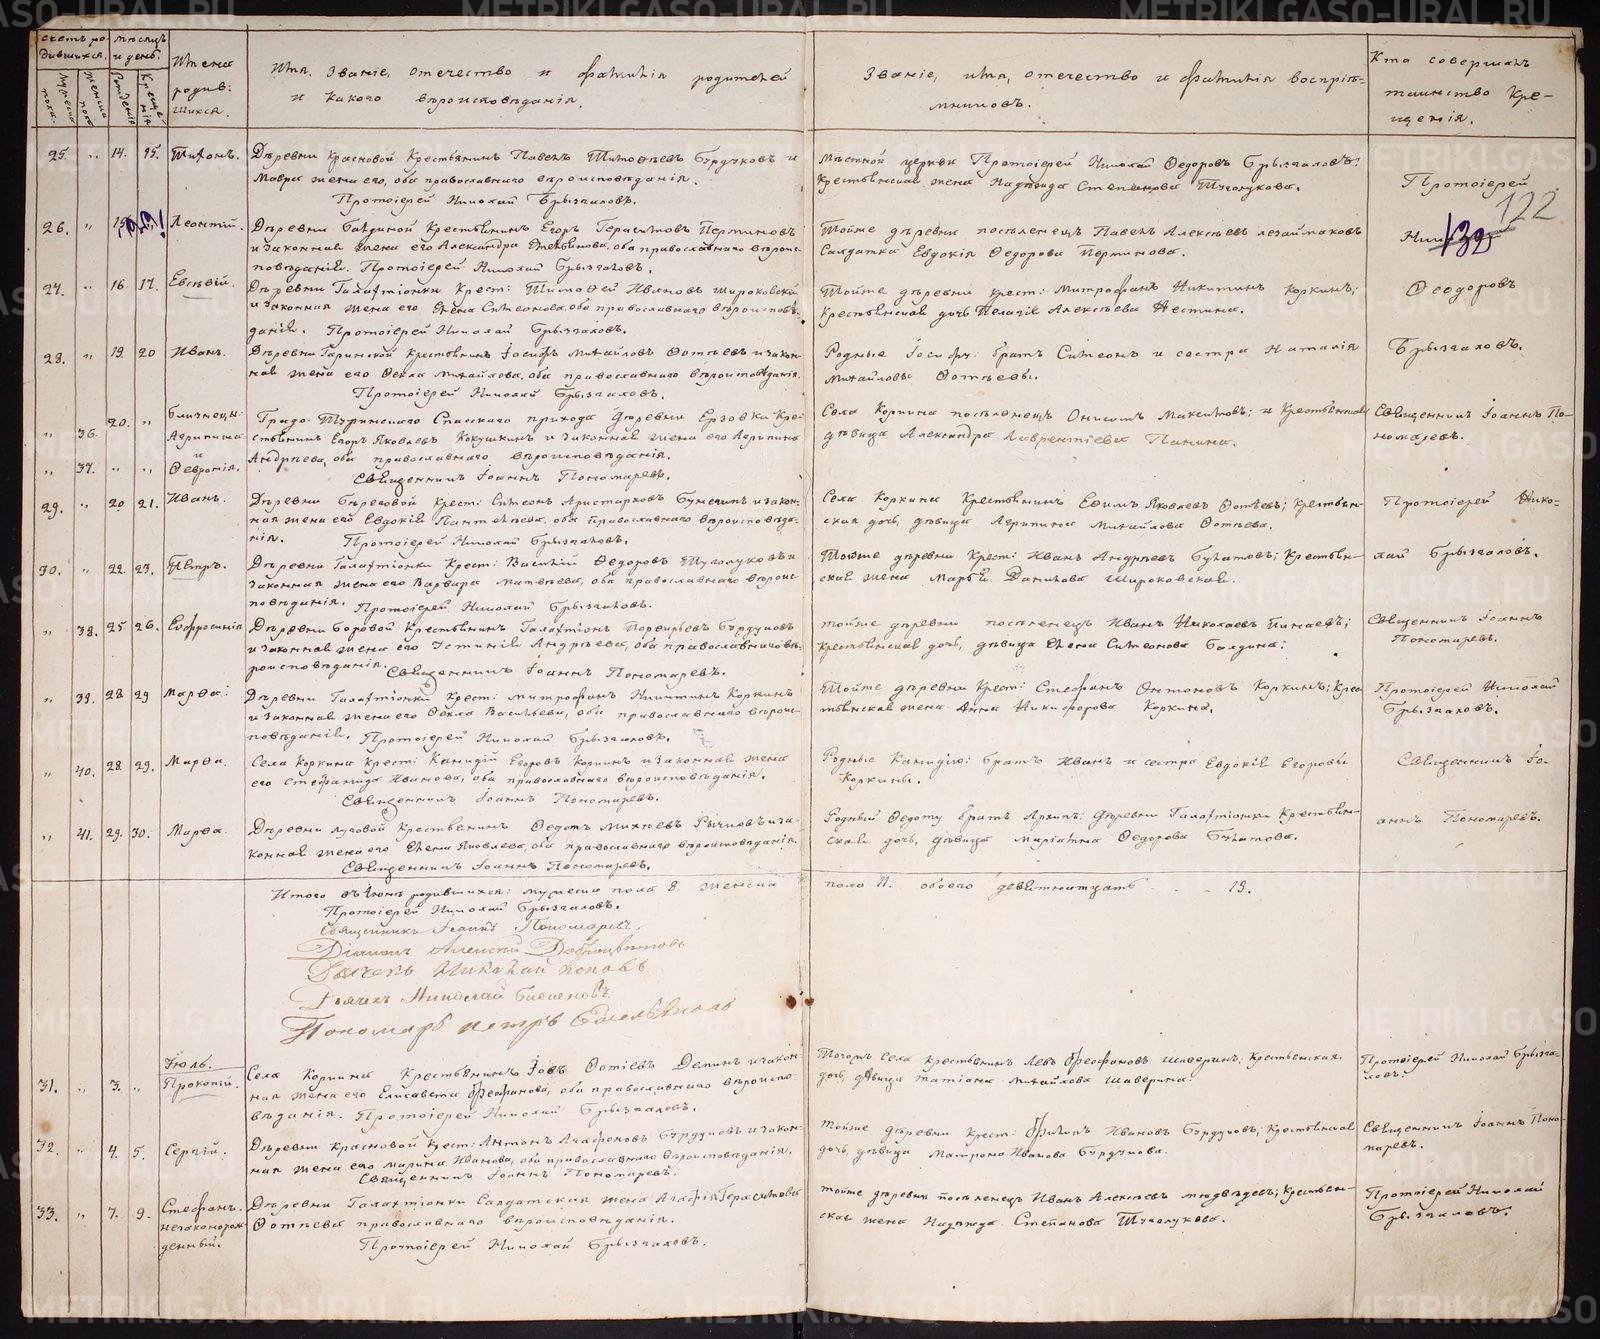 METRIKI.GASO-URAL.RU
Счетъ ро-
дившихся.
Мужеска
пола.
Женска
пола.
Мѣсяцъ
и день.
Рожденія
Крещенія
Имена
родив-
шихся.
Имя, званіе, отечество и фамилія родителей
и какого вѣроисповѣданія.
Званіе, имя, отечество и фамилія воспріе-
мниковъ.
Кто совершалъ
таинство Кре-
щенія.
25. " 14. 15. Тихонъ.
Деревни Красновой Крестьянинъ Павелъ Тимофѣевъ Бурдуковъ и
Мавра жена его, оба православнаго вѣроисповѣданія.
Протоіерей Николай Брызгаловъ.
Мѣстной церкви Протоіерей Николай Ѳедоровъ Брызгаловъ;
Крестьянская жена Надежда Степанова Туголукова.
Протоіерей
122
132
26. " Леонтій.
Деревни Бавдиной Крестьянинъ Егоръ Герасимовъ Перминовъ
и законная жена его Александра оба православнаго вѣроис-
повѣданія. Протоіерей Николай Брызгаловъ.
Тойже деревни поселенецъ Павелъ Алексѣевъ
Солдатка Евдокія Ѳедорова Перминова.
27. " 16. 17. Евсевій.
Деревни Галахтіонки Крест: Тимофей Ивановъ Широковскій
и законная жена его Елена Симеонова, оба православнаго вѣроисповѣ-
данія. Протоіерей Николай Брызгаловъ.
Тойже деревни крест: Митрофанъ Никитинъ Коркинъ;
Крестьянская дочь Пелагія Алексѣева
Ѳеодоровъ
28. " 19. 20 Иванъ.
Деревни Гаринской Крестьянинъ Іосифъ Михайловъ Фотѣевъ и закон-
ная жена его Ѳекла Михайлова, оба православнаго вѣроисповѣданія.
Протоіерей Николай Брызгаловъ.
Родные Іосифу: братъ Симеонъ и сестра Наталія
Михайловы Фотѣевы.
Брызгаловъ.
" 36. 20. " Близнецы:
Агрипина
и
" 37. " " Ѳевронія.
Градо-Туринскаго Спасскаго прихода деревни Ерзовки Кре-
стьянинъ Егоръ Яковлевъ Кокушкинъ и законная жена его Агрипина
Андреева, оба православнаго вѣроисповѣданія.
Священникъ Іоаннъ Пономаревъ.
Села Коркина поселенецъ Онисимъ Максимовъ; и Крестьянская
дѣвица Александра Лаврентіева Панина.
Священникъ Іоаннъ По-
номаревъ.
29. " 20 21. Иванъ.
Деревни Береговой Крест: Симеонъ Аристарховъ и закон-
ная жена его Евдокія Пантелѣева, оба православнаго вѣроисповѣда-
нія. Протоіерей Николай Брызгаловъ.
Села Коркина Крестьянинъ Ефимъ Яковлевъ Фотѣевъ; Крестьян-
ская дочь, дѣвица Агрипина Михайлова Фотѣева.
Протоіерей Нико-
лай Брызгаловъ.
30. " 22. 23. Петръ.
Деревни Галахтіонки Крест: Василій Ѳедоровъ Туголуковъ и
законная жена его Варвара Матвѣева, оба православнаго вѣроис-
повѣданія. Протоіерей Николай Брызгаловъ.
Тойже деревни Крест: Иванъ Андреевъ Булатовъ; Крестьян-
ская жена Марѳа Данилова Широковская.
" 38. 25 26. Евфросинія
Деревни Боровой Крестьянинъ Галахтіонъ Порфирьевъ Бурдуковъ
и законная жена его Устинія Андреева, оба православнаго вѣ-
роисповѣданія. Священникъ Іоаннъ Пономаревъ.
Тойже деревни поселенецъ Иванъ Николаевъ
Крестьянская дочь, дѣвица Елена Симеонова Балдина:
Священникъ Іоаннъ
Пономаревъ.
" 39. 28 29 Марѳа:
Деревни Галахтіонки Крест: Митрофанъ Никитинъ Коркинъ
и законная жена его Ѳекла Васильева, оба православнаго вѣроис-
повѣданія. Протоіерей Николай Брызгаловъ.
Тойже деревни Крест: Стефанъ Антоновъ Коркинъ; Крес-
тьянская жена Анна Никифорова Коркина.
Протоіерей Николай
Брызгаловъ.
" 40. 28. 29. Марѳа.
Села Коркина Крест: Канидій Егоровъ Коркинъ и законная жена
его Стефанида Иванова, оба православнаго вѣроисповѣданія.
Священникъ Іоаннъ Пономаревъ.
Родные Канидію: братъ Иванъ и сестра Евдокія Егоровы
Коркины.
Священникъ Іо-
аннъ Пономаревъ.
" 41. 29. 30. Марѳа.
Деревни Луговой Крестьянинъ Ѳедотъ Михѣевъ Рычковъ и за-
конная жена его Елена Яковлева, оба православнаго вѣроисповѣданія.
Священникъ Іоаннъ Пономаревъ.
Родный Ѳедоту братъ Архипъ; деревни Галахтіонки Крестьян-
ская дочь, дѣвица Маріамна Ѳедорова Булатова.
Итого въ Іюнѣ родившихся: мужеска пола 8. женска пола 11. обоего девятнатцать - - 19.
Протоіерей Николай Брызгаловъ.
Священникъ Іоаннъ Пономаревъ.
Діаконъ Алексей
Дьячекъ Николай Поповъ
Дьячекъ Николай
Пономарь Петръ
Іюль.
31. " 3. " Прокопій.
Села Коркина Крестьянинъ Іовъ Фотіевъ Детинъ и закон-
ная жена его Елисавета Феофанова, оба православнаго вѣроиспо-
вѣданія. Протоіерей Николай Брызгаловъ.
Тогожъ села Крестьянинъ Левъ Феофановъ Шаверинъ; Крестьянская
дочь, дѣвица Татіана Михайлова Шаверина.
Протоіерей Николай Брызга-
ловъ.
32. " 4. 5. Сергій.
Деревни Красновой Крест: Антонъ Агафоновъ Бурдуковъ и закон-
ная жена его Марина Иванова, оба православнаго вѣроисповѣданія.
Священникъ Іоаннъ Пономаревъ.
Тойже деревни Крест: Филипъ Ивановъ Бурдуковъ; Крестьянская
дочь, дѣвица Матрона Иванова Бурдукова.
Священникъ Іоаннъ Поно-
маревъ.
33. " 7. 9. Стефанъ.
незаконорож-
денный.
Деревни Галахтіонки Солдатская жена Агафія Герасимова
Фотѣева православнаго вѣроисповѣданія.
Протоіерей Николай Брызгаловъ.
Тойже деревни поселенецъ Иванъ Алексѣевъ Медведевъ; Крестьян-
ская жена Надежда Степанова Туголукова.
Протоіерей Николай
Брызгаловъ.